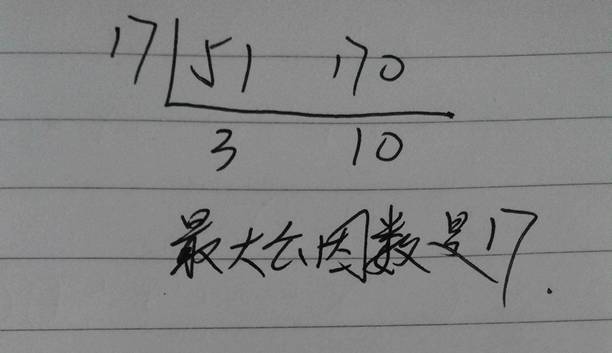 17 51 170
3 10
最大公因数是17.